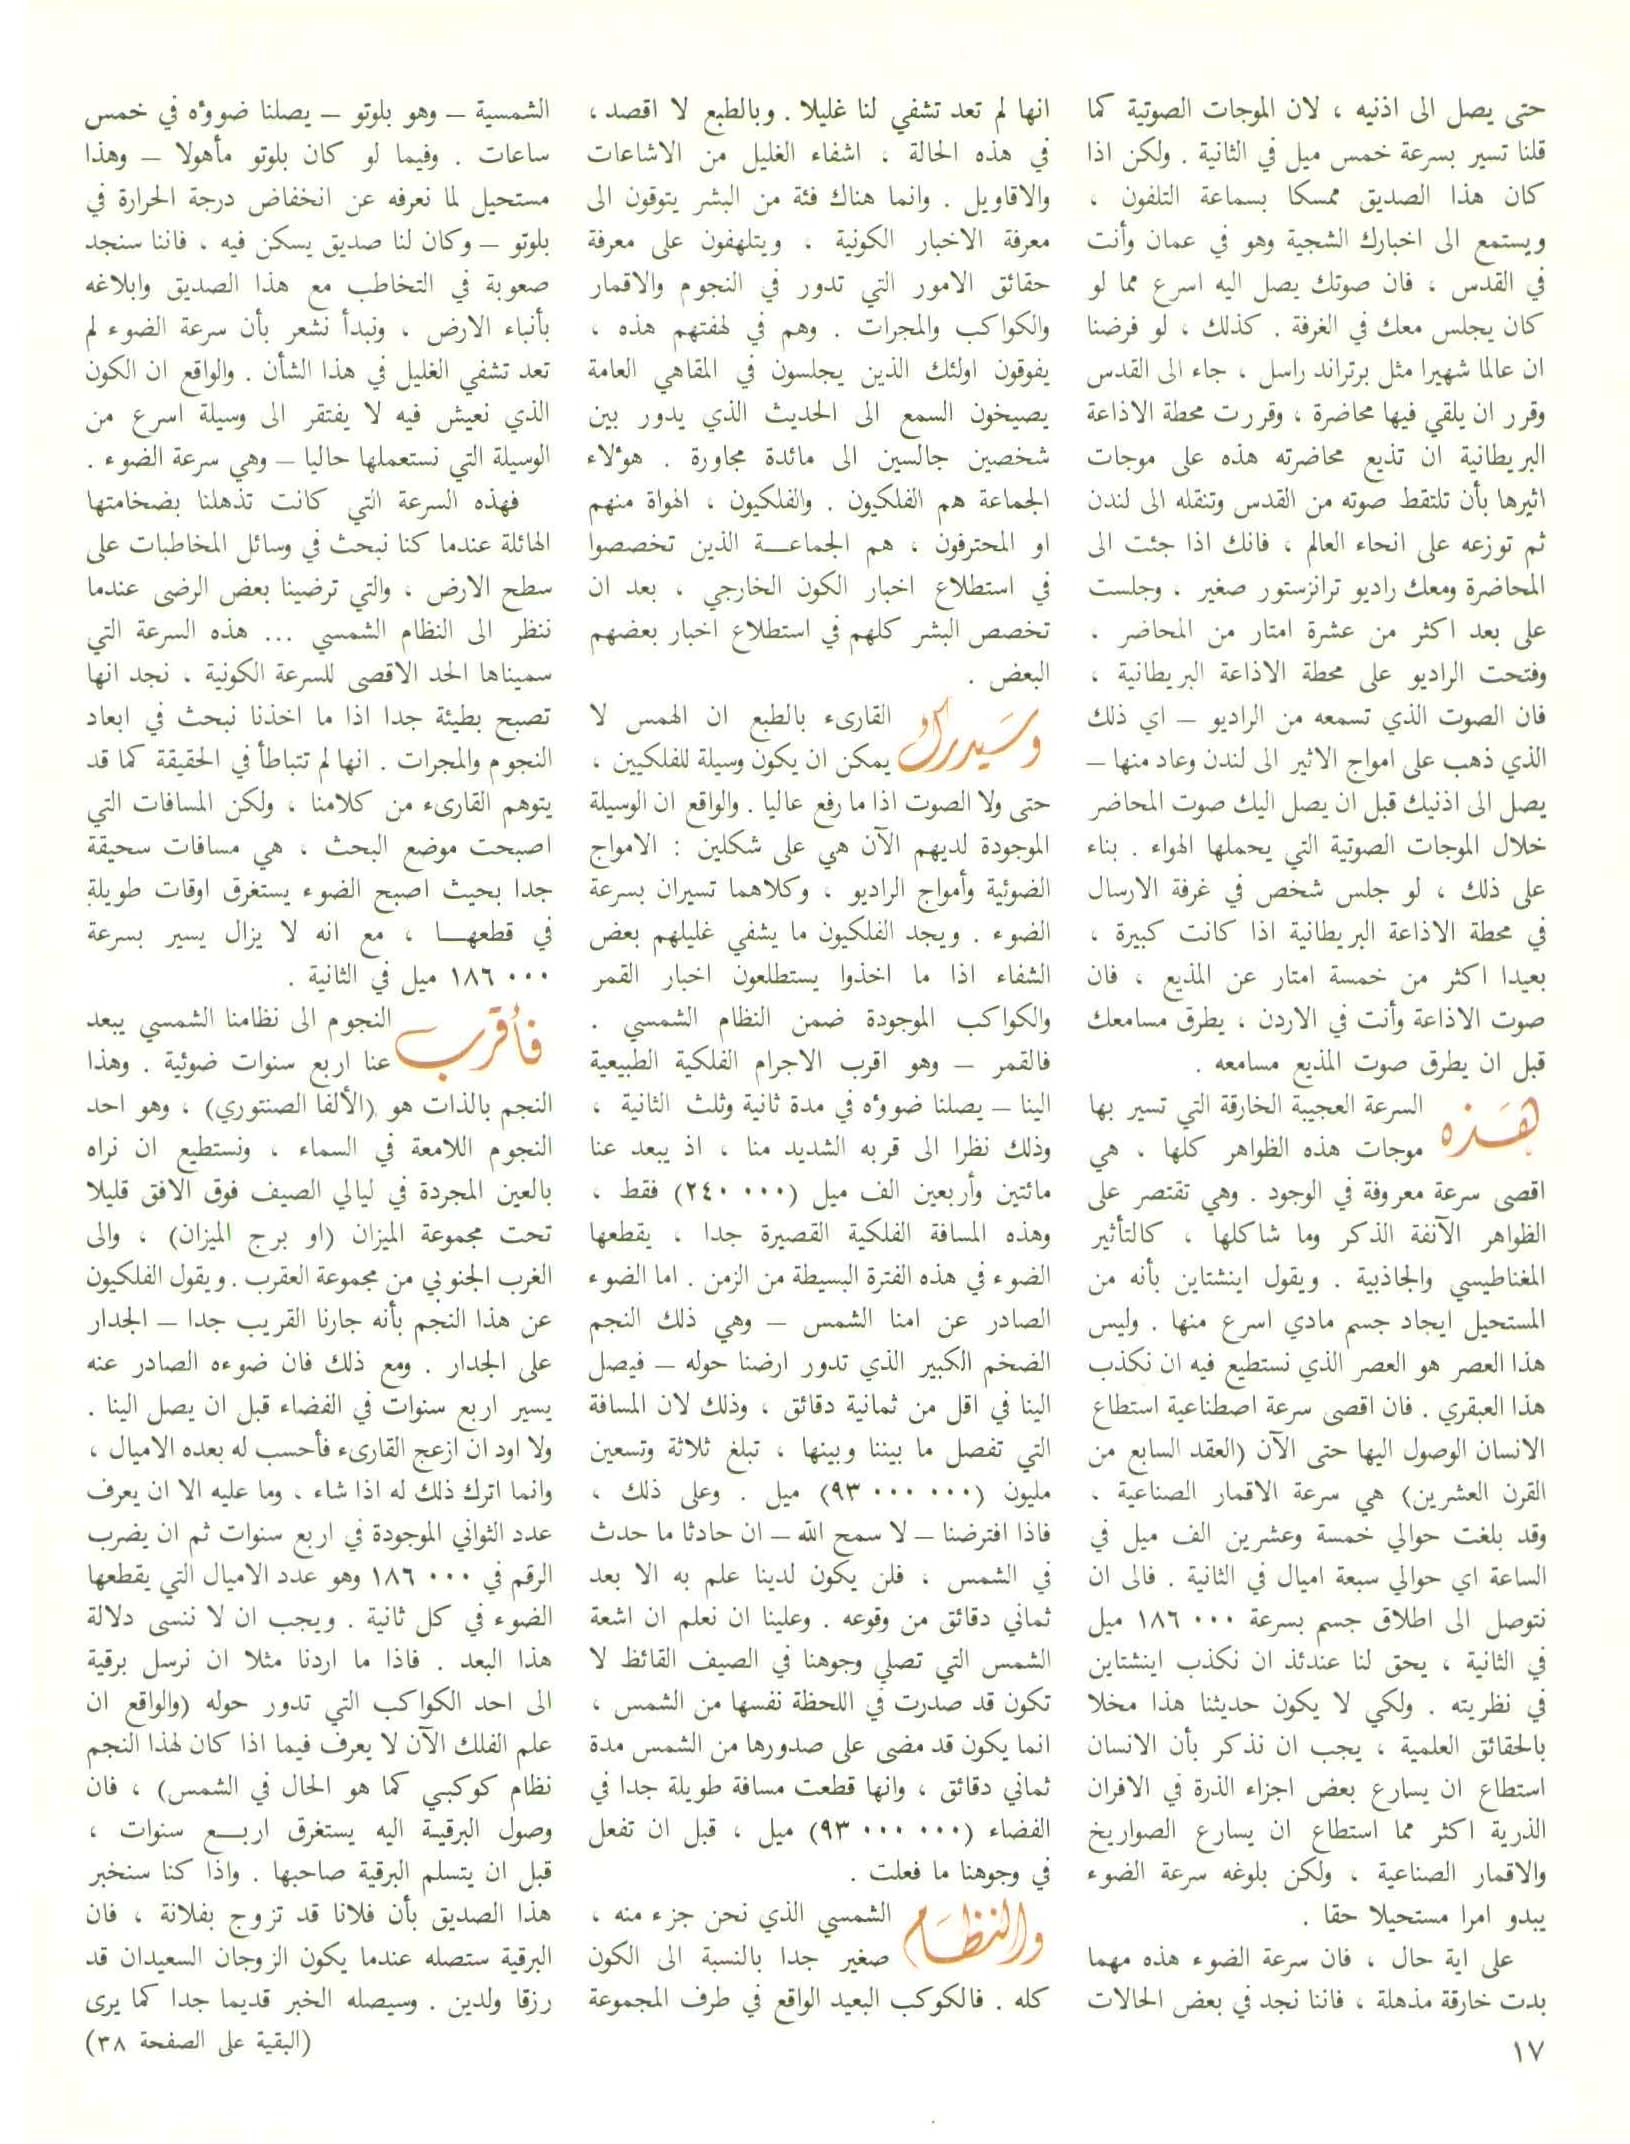 حتى يصل الى اذنيه ، لان الموجات الصوتية كما
قلنا تسير بسرعة خمس ميل في الثانية . ولكن اذا
كان هذا الصديق ممسكا بسماعة التلفون ،
ويستمع الى اخبارك الشجية وهو في عمان وأنت
في القدس ، فان صوتك يصل اليه اسرع مما لو
كان يجلس معك في الغرفة . كذلك ، لو فرضنا
ان عالما شهيرا مثل برتراند راسل ، جاء الى القدس
وقرر ان يلقي فيها محاضرة ، وقررت محطة الاذاعة
البريطانية ان تذيع محاضرته هذه على موجات
اثيرها بأن تلتقط صوته من القدس وتنقله الى لندن
ثم توزعه على انحاء العالم ، فانك اذا جئت الى
المحاضرة ومعك راديو ترانزستور صغير ، وجلست
على بعد اكثر من عشرة امتار من المحاضر ،
وفتحت الراديو على محطة الاذاعة البريطانية ،
فان الصوت الذي تسمعه من الراديو – اي ذلك
الذي ذهب على امواج الاثير الى لندن وعاد منها –
يصل الى اذنيك قبل ان يصل اليك صوت المحاضر
خلال الموجات الصوتية التي يحملها الهواء . بناء
على ذلك ، لو جلس شخص في غرفة الارسال
في محطة الاذاعة البريطانية اذا كانت كبيرة ،
بعيدا اكثر من خمسة امتار عن المذيع ، فان
صوت الاذاعة وأنت في الاردن ، يطرق مسامعك
قبل ان يطرق صوت المذيع مسامعه .
هَذه السرعة العجيبة الخارقة التي تسير بها
موجات هذه الظواهر كلها ، هي
اقصى سرعة معروفة في الوجود . وهي تقتصر على
الظواهر الآنفة الذكر وما شاكلها ، كالتأثير
المغناطيسي والجاذبية . ويقول اينشتاين بأنه من
المستحيل ايجاد جسم مادي اسرع منها . وليس
هذا العصر هو العصر الذي نستطيع فيه ان نكذب
هذا العبقري . فان اقصى سرعة اصطناعية استطاع
الانسان الوصول اليها حتى الآن (العقد السابع من
القرن العشرين) هي سرعة الاقمار الصناعية ،
وقد بلغت حوالي خمسة وعشرين الف ميل في
الساعة اي حوالي سبعة اميال في الثانية . فالى ان
نتوصل الى اطلاق جسم بسرعة ١٨٦ ٠٠٠ ميل
في الثانية ، يحق لنا عندئذ ان نكذب اينشتاين
في نظريته . ولكي لا يكون حديثنا هذا مخلا
بالحقائق العلمية ، يجب ان نذكر بأن الانسان
استطاع ان يسارع بعض اجزاء الذرة في الافران
الذرية اكثر مما استطاع ان يسارع الصواريخ
والاقمار الصناعية ، ولكن بلوغه سرعة الضوء
يبدو امرا مستحيلا حقا .
على اية حال ، فان سرعة الضوء هذه مهما
بدت خارقة مذهلة ، فاننا نجد في بعض الحالات
انها لم تعد تشفي لنا غليلا . وبالطبع لا اقصد ،
في هذه الحالة ، اشفاء الغليل من الاشاعات
والاقاويل . وانما هناك فئة من البشر يتوقون الى
معرفة الاخبار الكونية ، ويتلهفون على معرفة
حقائق الامور التي تدور في النجوم والاقمار
والكواكب والمجرات . وهم في لهفتهم هذه ،
يفوقون اولئك الذين يجلسون في المقاهي العامة
يصيخون السمع الى الحديث الذي يدور بين
شخصين جالسين الى مائدة مجاورة . هؤلاء
الجماعة هم الفلكيون . والفلكيون ، الهواة منهم
او المحترفون ، هم الجماعة الذين تخصصوا
في استطلاع اخبار الكون الخارجي ، بعد ان
تخصص البشر كلهم في استطلاع اخبار بعضهم
البعض .
وسَيدرك القارىء بالطبع ان الهمس لا
يمكن ان يكون وسيلة للفلكيين ،
حتى ولا الصوت اذا ما رفع عاليا . والواقع ان الوسيلة
الموجودة لديهم الآن هي على شكلين : الامواج
الضوئية وأمواج الراديو ، وكلاهما تسيران بسرعة
الضوء . ويجد الفلكيون ما يشفي غليلهم بعض
الشفاء اذا ما اخذوا يستطلعون اخبار القمر
والكواكب الموجودة ضمن النظام الشمسي .
فالقمر – وهو اقرب الاجرام الفلكية الطبيعية
الينا – يصلنا ضووٴه في مدة ثانية وثلث الثانية ،
وذلك نظرا الى قربه الشديد منا ، اذ يبعد عنا
مائتين وأربعين الف ميل (٢٤٠ ٠٠٠) فقط ،
وهذه المسافة الفلكية القصيرة جدا ، يقطعها
الضوء في هذه الفترة البسيطة من الزمن . اما الضوء
الصادر عن امنا الشمس – وهي ذلك النجم
الضخم الكبير الذي تدور ارضنا حوله – فيصل
الينا في اقل من ثمانية دقائق ، وذلك لان المسافة
التي تفصل ما بيننا وبينها ، تبلغ ثلاثة وتسعين
مليون (٩٣ ٠٠٠ ٠٠٠) ميل . وعلى ذلك ،
فاذا افترضنا – لا سمح الله – ان حادثا ما حدث
في الشمس ، فلن يكون لدينا علم به الا بعد
ثماني دقائق من وقوعه . وعلينا ان نعلم ان اشعة
الشمس التي تصلي وجوهنا في الصيف القائظ لا
تكون قد صدرت في اللحظة نفسها من الشمس ،
انما يكون قد مضى على صدورها من الشمس مدة
ثماني دقائق ، وانها قطعت مسافة طويلة جدا في
الفضاء (٩٣ ٠٠٠ ٠٠٠) ميل ، قبل ان تفعل
في وجوهنا ما فعلت .
والنظَام الشمسي الذي نحن جزء منه ،
صغير جدا بالنسبة الى الكون
كله . فالكوكب البعيد الواقع في طرف المجموعة
الشمسية – وهو بلوتو – يصلنا ضووٴه في خمس
ساعات . وفيما لو كان بلوتو مأهولا – وهذا
مستحيل لما نعرفه عن انخفاض درجة الحرارة في
بلوتو – وكان لنا صديق يسكن فيه ، فاننا سنجد
صعوبة في التخاطب مع هذا الصديق وابلاغه
بأنباء الارض ، ونبدأ نشعر بأن سرعة الضوء لم
تعد تشفي الغليل في هذا الشأن . والواقع ان الكون
الذي نعيش فيه لا يفتقر الى وسيلة اسرع من
الوسيلة التي نستعملها حاليا – وهي سرعة الضوء .
فهذه السرعة التي كانت تذهلنا بضخامتها
الهائلة عندما كنا نبحث في وسائل المخاطبات على
سطح الارض ، والتي ترضينا بعض الرضى عندما
ننظر الى النظام الشمسي ... هذه السرعة التي
سميناها الحد الاقصى للسرعة الكونية ، نجد انها
تصبح بطيئة جدا اذا ما اخذنا نبحث في ابعاد
النجوم والمجرات . انها لم تتباطأ في الحقيقة كما قد
يتوهم القارىء من كلامنا ، ولكن المسافات التي
اصبحت موضع البحث ، هي مسافات سحيقة
جدا بحيث اصبح الضوء يستغرق اوقات طويلة
في قطعها ، مع انه لا يزال يسير بسرعة
١٨٦ ٠٠٠ ميل في الثانية .
فأقرب النجوم الى نظامنا الشمسي يبعد
عنا اربع سنوات ضوئية . وهذا
النجم بالذات هو (الألفا الصنتوري) ، وهو احد
النجوم اللامعة في السماء ، ونستطيع ان نراه
بالعين المجردة في ليالي الصيف فوق الافق قليلا
تحت مجموعة الميزان (او برج الميزان) ، والى
الغرب الجنوبي من مجموعة العقرب . ويقول الفلكيون
عن هذا النجم بأنه جارنا القريب جدا – الجدار
على الجدار . ومع ذلك فان ضوءه الصادر عنه
يسير اربع سنوات في الفضاء قبل ان يصل الينا .
ولا اود ان ازعج القارىء فأحسب له بعده الاميال ،
وانما اترك ذلك له اذا شاء ، وما عليه الا ان يعرف
عدد الثواني الموجودة في اربع سنوات ثم ان يضرب
الرقم في ١٨٦ ٠٠٠ وهو عدد الاميال التي يقطعها
الضوء في كل ثانية . ويجب ان لا ننسى دلالة
هذا البعد . فاذا ما اردنا مثلا ان نرسل برقية
الى احد الكواكب التي تدور حوله (والواقع ان
علم الفلك الآن لا يعرف فيما اذا كان لهذا النجم
نظام كوكبي كما هو الحال في الشمس) ، فان
وصول البرقية اليه يستغرق اربع سنوات ،
قبل ان يتسلم البرقية صاحبها . واذا كنا سنخبر
هذا الصديق بأن فلانا قد تزوج بفلانة ، فان
البرقية ستصله عندما يكون الزوجان السعيدان قد
رزقا ولدين . وسيصله الخبر قديما جدا كما يرى
(البقية على الصفحة ٣٨)
١٧